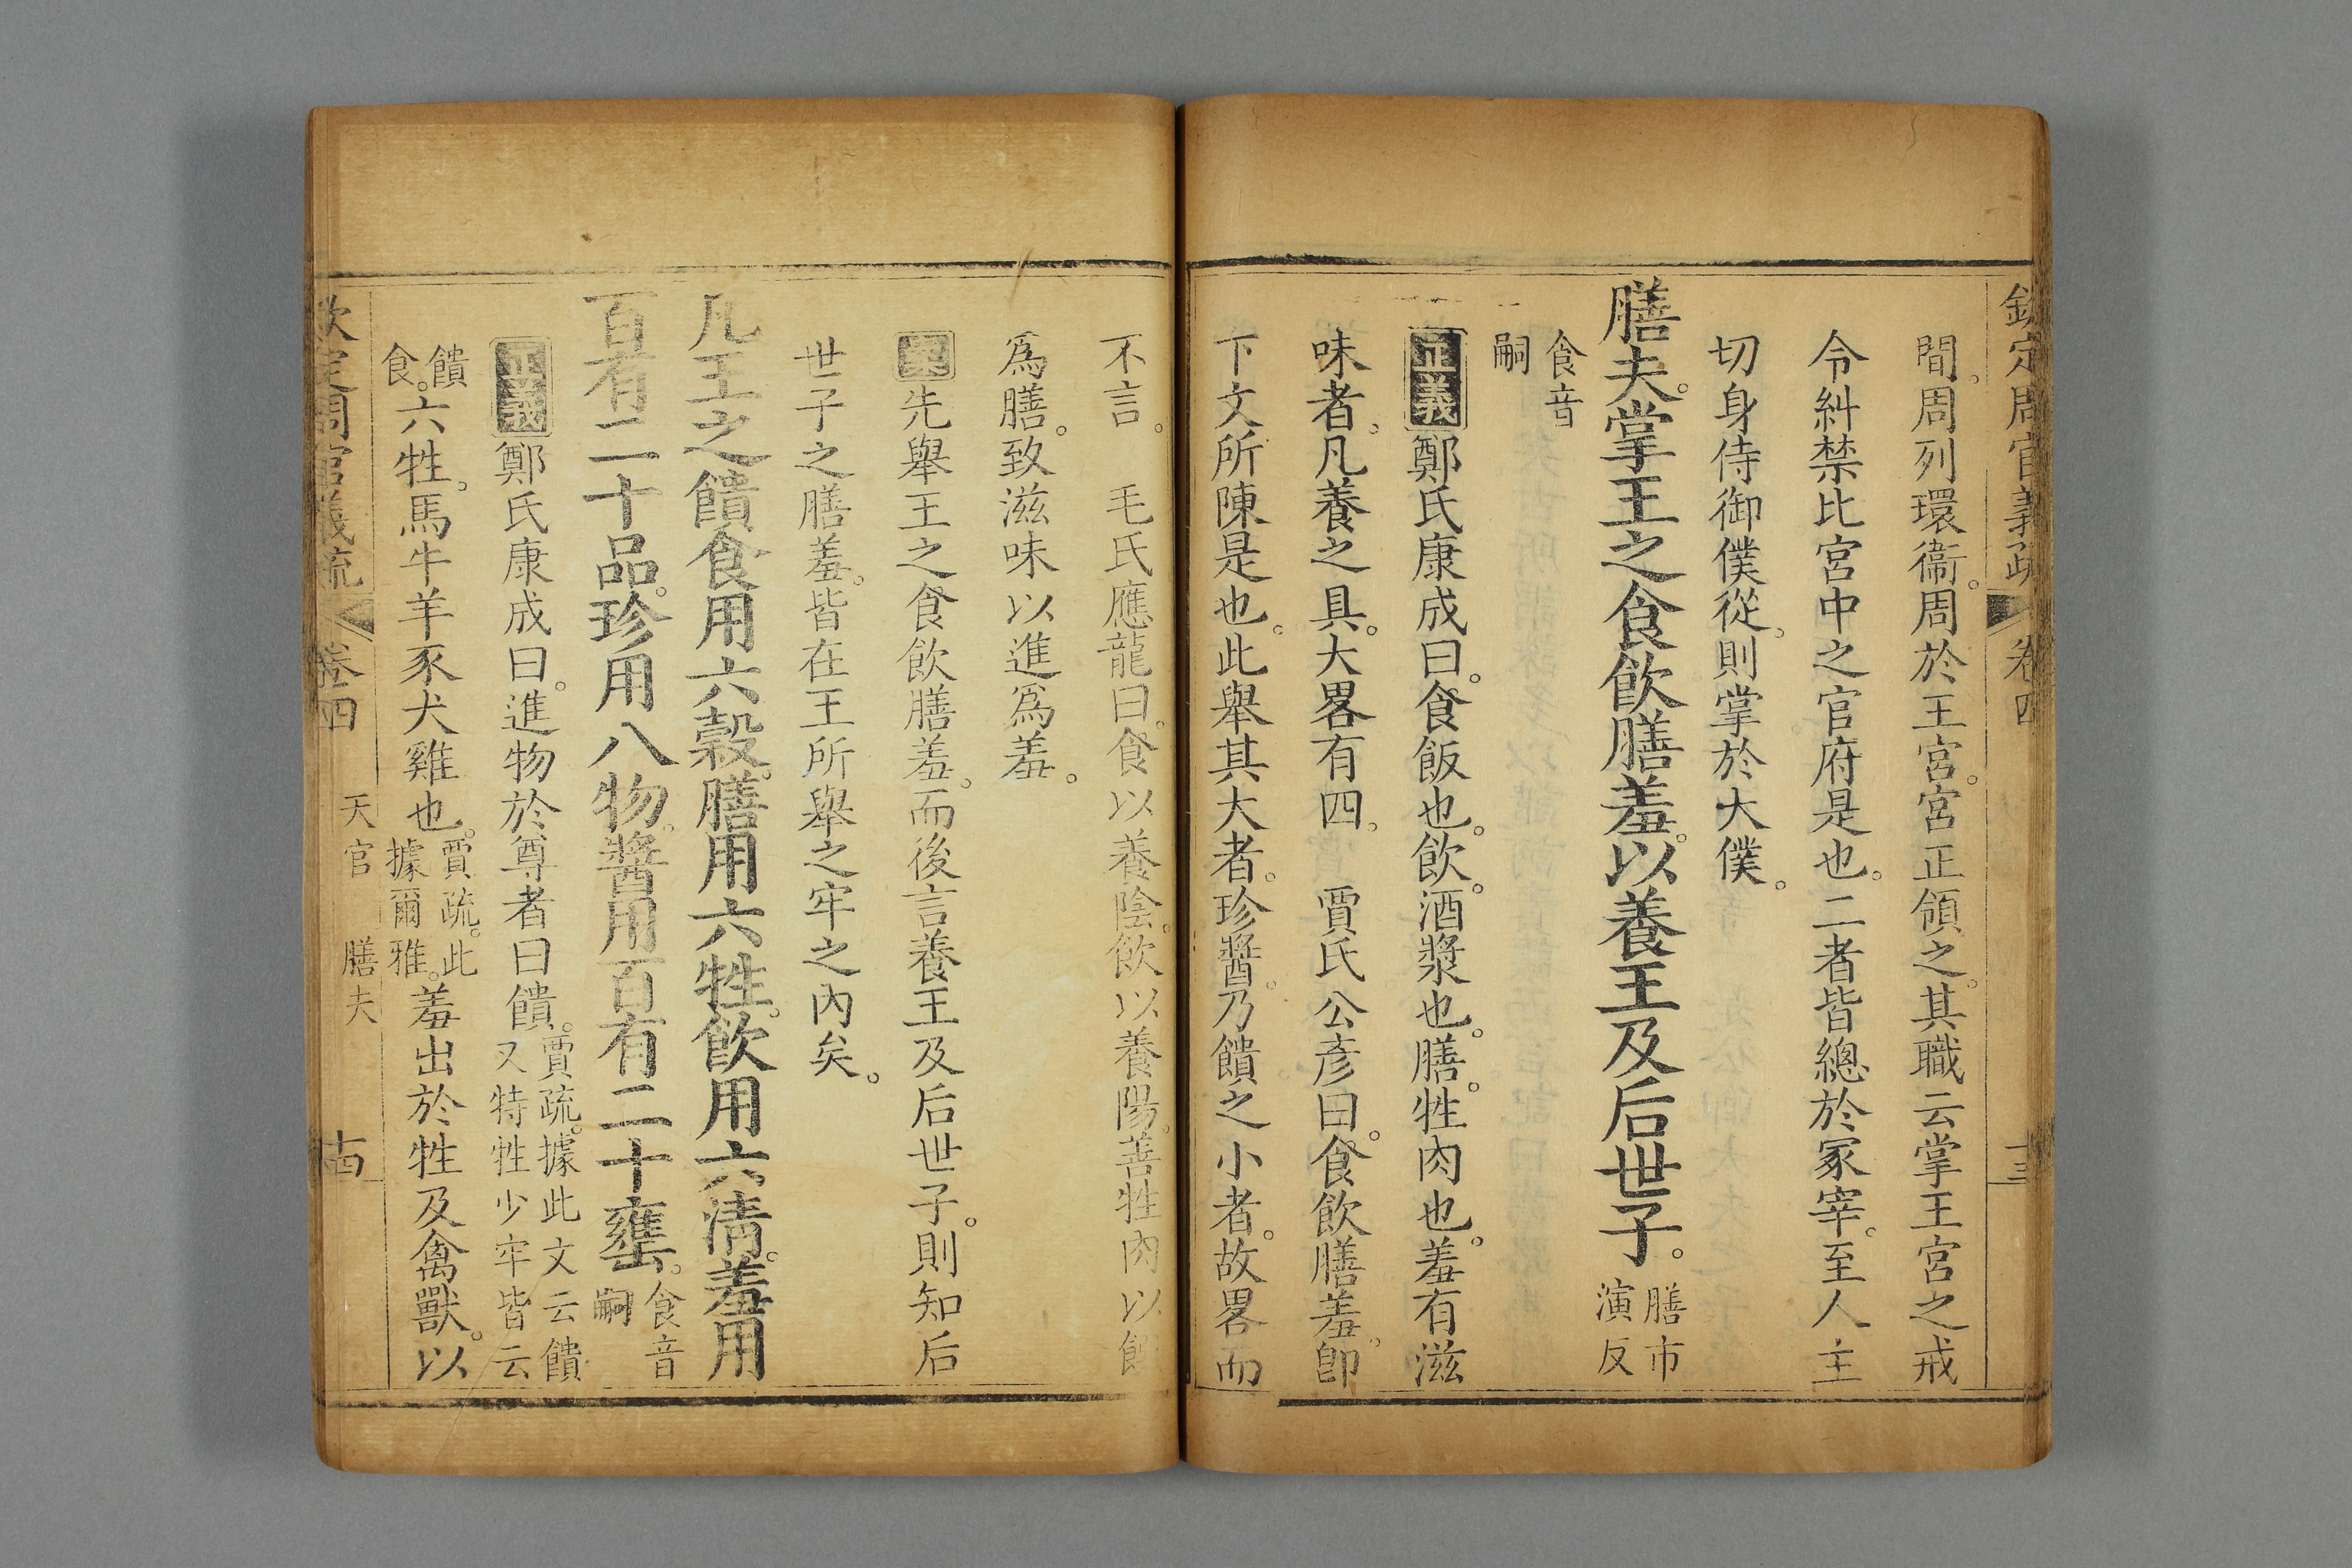 欽定周官義疏 卷四 十三
間。周列環衞。周於王宮。宮正領之。其職云掌王宮之戒
令糾禁比宮中之官府是也。二者皆總於冢宰。至人主
切身侍御僕從。則掌於大僕。
膳夫。掌王之食飲膳羞。以養王及后世子。膳市
演反
食音
嗣
正義鄭氏康成曰。食飯也。飲。酒漿也。膳。牲肉也。羞有滋
味者。凡養之具。大畧有四。 賈氏公彦曰。食飲膳羞。卽
下文所陳是也。此舉其大者。珍醬。乃饋之小者。故畧而
不言。 毛氏應龍曰。食以養陰。飲以養陽。善牲肉以
爲膳。致滋味以進爲羞。
案先舉王之食飲膳羞。而後言養王及后世子。則知后
世子之膳羞。皆在王所舉之牢之內矣。
凡王之饋食用六穀。膳用六牲。飲用六淸。羞用
百有二十品。珍用八物。醬用百有二十罋。食音
嗣
正義鄭氏康成曰。進物於尊者曰饋。賈疏。據此文云饋
又特牲少牢皆云
饋
食。六牲。馬牛羊豕犬雞也。賈疏。此
據爾雅。羞出於牲及禽獸。以
欽定周官義疏 卷四 天官 膳夫 十四